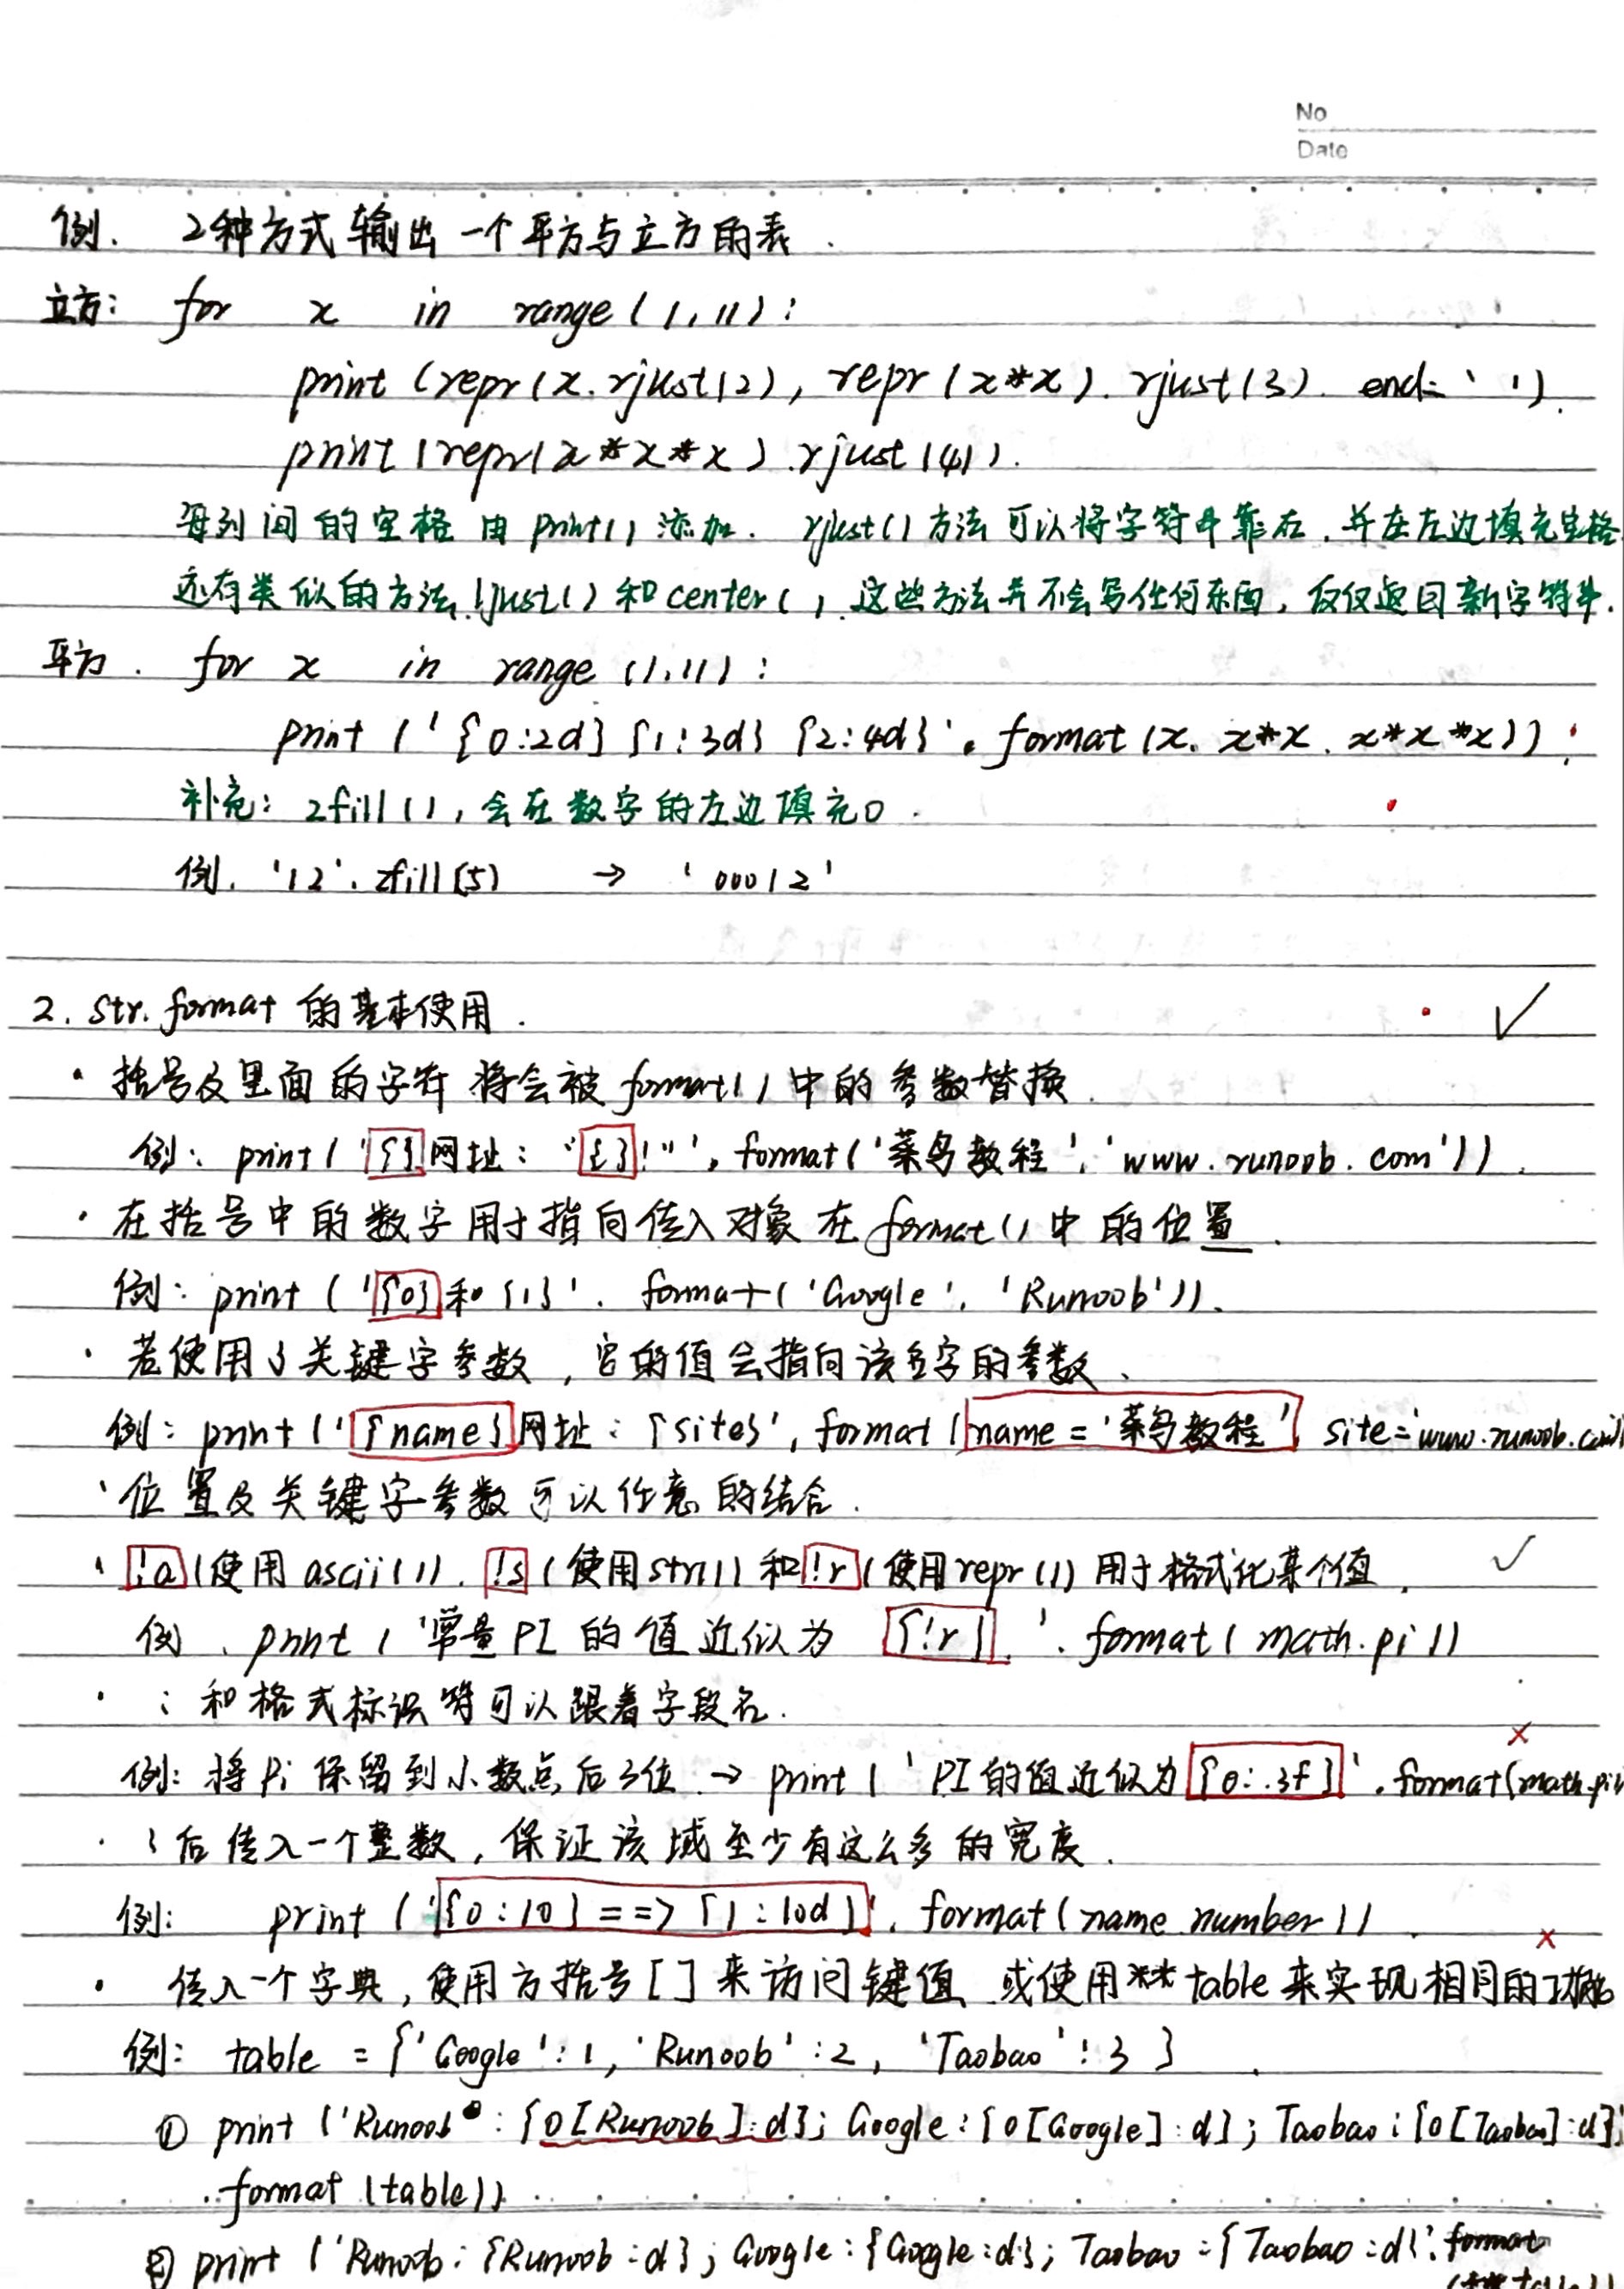 No
Date
例. 2种方式输出一个平方与立方的表.
立方: for x in range(1,11):
print(repr(x.rjust(2), repr(x*x).rjust(3). end=' ').
print(repr(x*x*x).rjust(4)).
每列间的空格由print()添加. rjust()方法可以将字符串靠右,并在左边填充空格
还有类似的方法,ljust()和center(),这些方法并不会写任何东西,仅仅返回新字符串.
平方. for x in range(1,11):
print('{0:2d} {1:3d} {2:4d}'.format(x, x*x, x*x*x)):
补充: zfill(),会在数字的左边填充0.
例. '12'.zfill(5) → '00012'
2. str.format的基本使用.
· 括号及里面的字符将会被format()中的参数替换.
例: print('{}网址: "{}!"'.format('菜鸟教程','www.runoob.com')).
· 在括号中的数字用于指向传入对象在format()中的位置.
例: print('{0}和{1}'.format('Google','Runoob')).
· 若使用了关键字参数,它的值会指向该名字的参数.
例: print('{name}网址: {site}'.format(name='菜鸟教程' site='www.runoob.com'
· 位置及关键字参数可以任意的结合.
· !a(使用ascii()). !s(使用str()) 和!r(使用repr()) 用于格式化某个值.
例. print('常量PI的值近似为 {!r}.'.format(math.pi))
· : 和格式标识符可以跟着字段名.
例: 将Pi保留到小数点后3位 → print('PI的值近似为{0:.3f}'.format(math.pi
· : 后传入一个整数,保证该域至少有这么多的宽度.
例: print('{0:10} ==> {1:10d}'.format(name,number)).
· 传入一个字典,使用方括号[]来访问键值、或使用**table来实现相同的功能
例: table = {'Google':1, 'Runoob':2, 'Taobao':3}
① print('Runoob: {0[Runoob]:d}; Google:{0[Google]:d}; Taobao:{0[Taobao]:d}'
.format(table))
② print('Runoob: {Runoob:d}; Google:{Google:d}; Taobao:{Taobao:d}'.format
(**table))